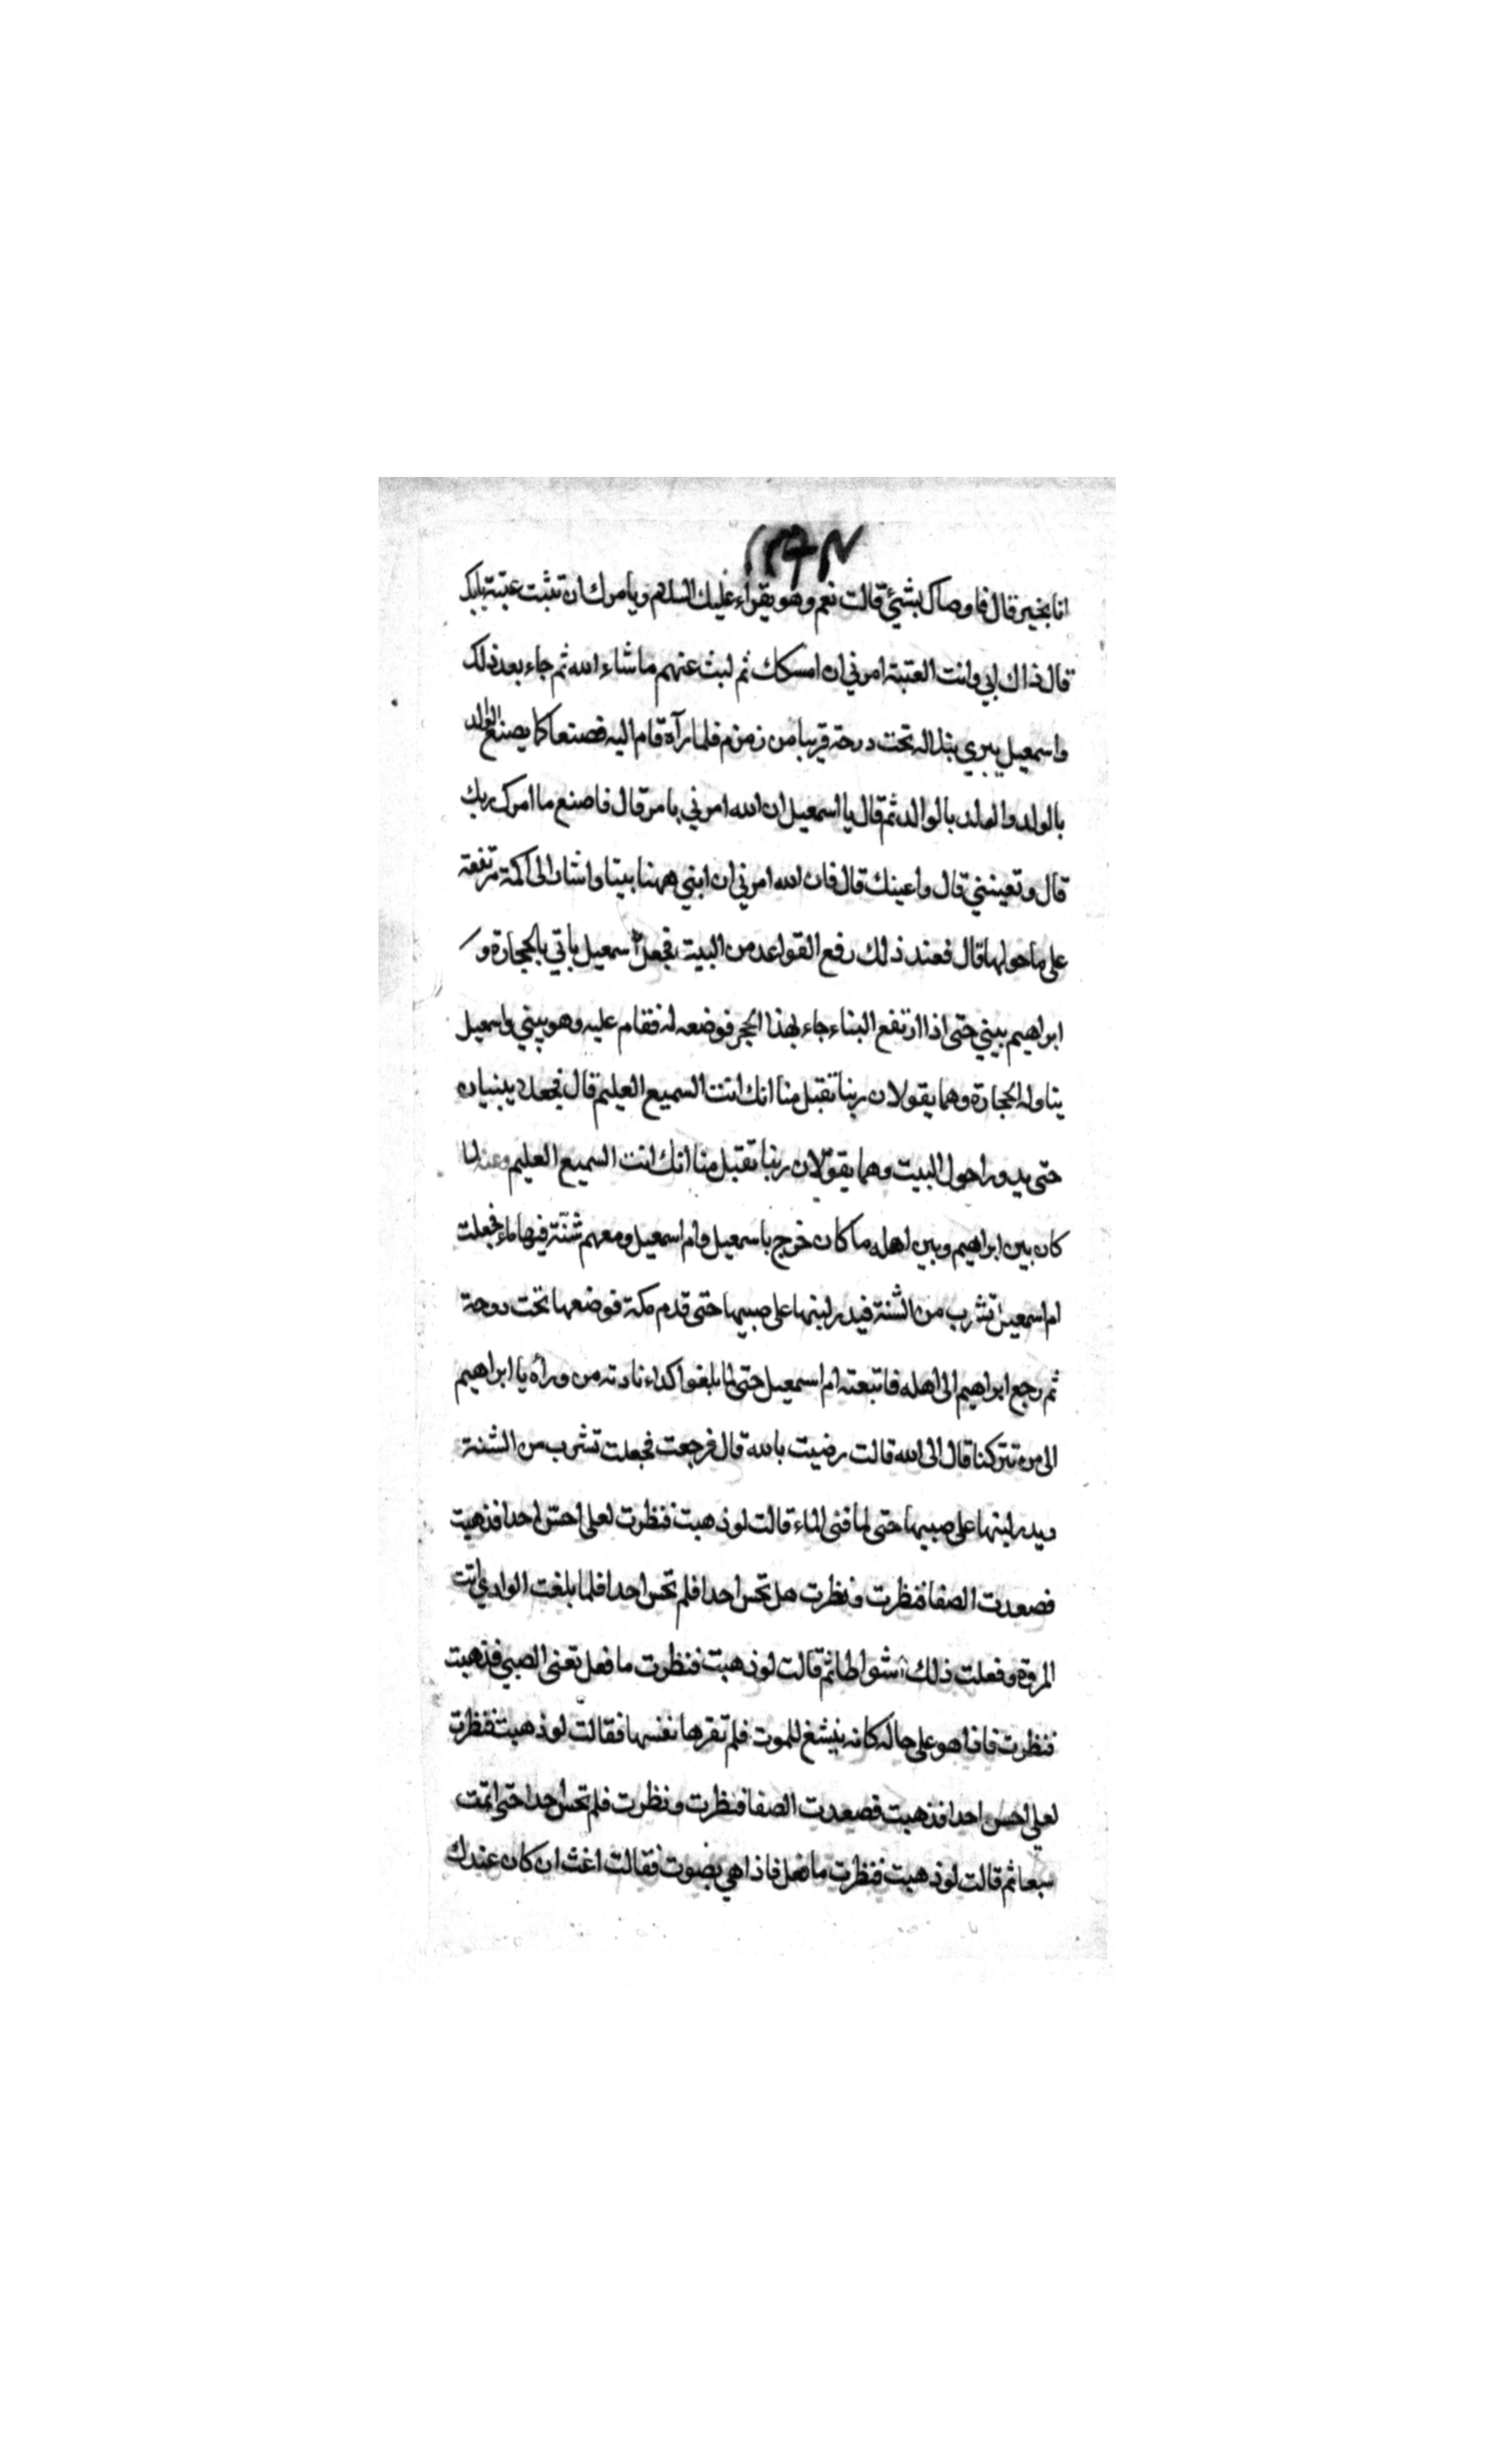 انا بخير قال فاوصاك بشيئ قالت نعم وهو يقراء عليك السلام ويامرك ان تثبت عتبة بابك
قال ذاك ابي وانت العتبة امرني ان امسكك ثم لبث عنهم ماشاء الله ثم جاء بعد ذلك
واسمعيل يبري نبلا له تحت دوحة قريبا من زمزم فلما رآه قام اليه فصنعا كما يصنع الوالد
بالولد والولد بالوالد ثم قال يا اسمعيل ان الله امرني بامر قال فاصنع ما امرك ربك
قال وتعينني قال واعينك قال فان الله امرني ان ابني ههنا بيتا واشار الى اكمة مرتفعة
على ما حولها قال فعند ذلك رفع القواعد من البيت فجعل اسمعيل ياتي بالحجارة و
ابراهيم يبني حتى اذا ارتفع البناء جاء بهذا الحجر فوضعه له فقام عليه وهو يبني واسمعيل
يناوله الحجارة وهما يقولان ربنا تقبل منا انك انت السميع العليم قال فجعلا يبنيان
حتى يدورا حول البيت وهما يقولان ربنا تقبل منا انك انت السميع العليم وعنه لما
كان بين ابراهيم وبين اهله ما كان خرج باسمعيل وام اسمعيل ومعهم شنة فيها ماء فجعلت
ام اسمعيل تشرب من الشنة فيدر لبنها على صبيها حتى قدم مكة فوضعها تحت دوحة
ثم رجع ابراهيم الى اهله فاتبعته ام اسمعيل حتى لما بلغوا كداء نادته من ورأه يا ابراهيم
الى من تتركنا قال الى الله قالت رضيت بالله قال فرجعت فجعلت تشرب من الشنة
ويدر لبنها على صبيها حتى لما فنى الماء قالت لو ذهبت فنظرت لعلي احس احدا فذهبت
فصعدت الصفا فنظرت ونظرت هل تحس احدا فلم تحس احدا فلما بلغت الوادي اتت
المروة وفعلت ذلك اشواطا ثم قالت لو ذهبت فنظرت ما فعل تعنى الصبي فذهبت
فنظرت فاذا هو على حاله كانه ينشغ للموت فلم تقرها نفسها فقالت لو ذهبت فنظرت
لعلي احس احدا فذهبت فصعدت الصفا فنظرت ونظرت فلم تحس احدا حتى اتمت
سبعا ثم قالت لو ذهبت فنظرت ما فعل فاذا هي بصوت فقالت اغث ان كان عندك